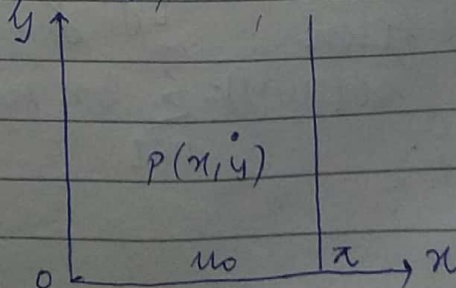 y
P(x,y)
0 u₀ π x